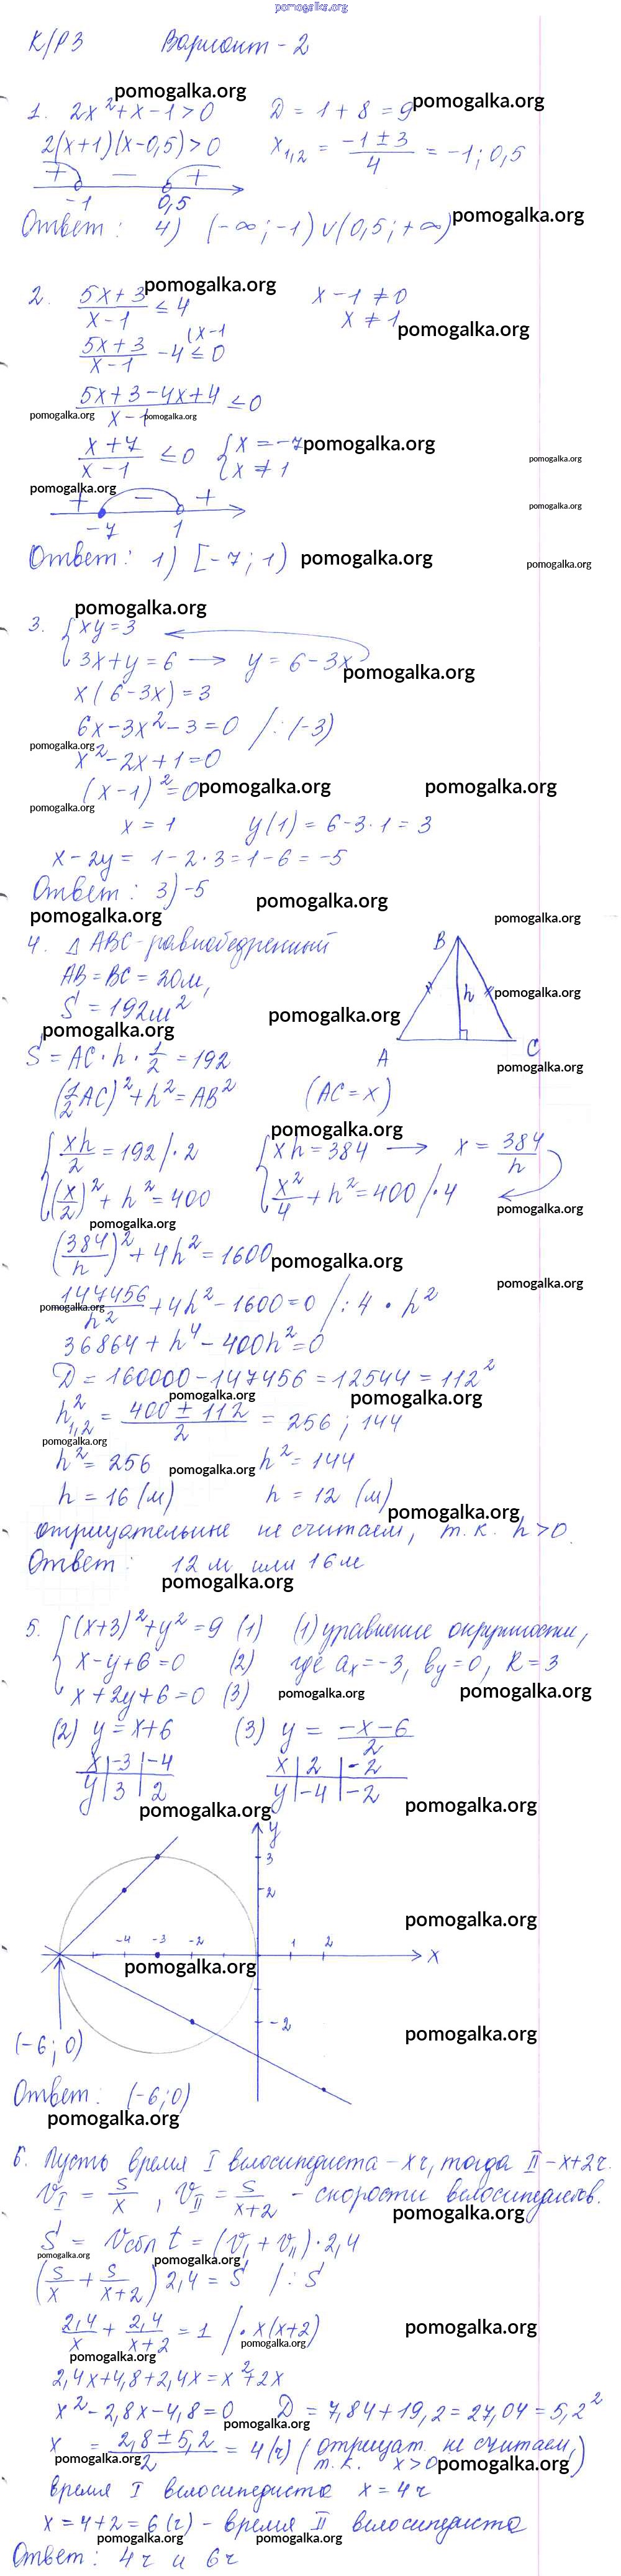 pomogalka.org
К/Р3 Вариант - 2
pomogalka.org
1. 2x²+x-1>0 D = 1 + 8 = 9 pomogalka.org
2(x+1)(x-0,5)>0 x₁,₂ = (-1 ± 3)/4 = -1; 0,5
+ - +
-1 0,5
Ответ: 4) (-∞; -1) ∪ (0,5; +∞) pomogalka.org
2. (5x+3)/(x-1) ≤ 4 pomogalka.org x - 1 ≠ 0
x ≠ 1 pomogalka.org
(5x+3)/(x-1) - 4 (x-1 ≤ 0
(5x+3-4x+4)/(x-1) ≤ 0
pomogalka.org pomogalka.org
(x+7)/(x-1) ≤ 0 { x = -7 pomogalka.org
x ≠ 1 pomogalka.org
pomogalka.org
+ - + pomogalka.org
-7 1
Ответ: 1) [-7; 1) pomogalka.org pomogalka.org
pomogalka.org
3. { xy=3
3x+y=6 → y = 6-3x pomogalka.org
x(6-3x)=3
6x-3x²-3=0 /:(-3)
pomogalka.org
x²-2x+1=0
(x-1)²=0 pomogalka.org pomogalka.org
pomogalka.org
x = 1 y(1) = 6-3·1 = 3
x-2y = 1-2·3=1-6=-5
Ответ: 3) -5 pomogalka.org
pomogalka.org pomogalka.org
4. Δ ABC - равнобедренный B
AB=BC=20м, h pomogalka.org
S = 192м² pomogalka.org
pomogalka.org A C
S = AC·h·1/2 = 192 pomogalka.org
(1/2 AC)²+h²=AB² (AC=x)
pomogalka.org
{ xh/2 = 192 /·2 { xh=384 → x = 384/h
(x/2)²+h²=400 x²/4+h²=400 /·4 pomogalka.org
pomogalka.org
(384/h)²+4h²=1600 pomogalka.org
pomogalka.org
147456/h²+4h²-1600=0 /:4 · h²
pomogalka.org
36864+h⁴-400h²=0
D = 160000-147456=12544=112²
pomogalka.org pomogalka.org
h²₁,₂ = (400±112)/2 = 256; 144
pomogalka.org
h²=256 pomogalka.org h²=144
h = 16 (м) h = 12 (м)
pomogalka.org
отрицательные не считаем, т.к. h>0.
Ответ: 12 м или 16 м
pomogalka.org
5. { (x+3)²+y²=9 (1) (1) уравнение окружности,
x-y+6=0 (2) где aₓ=-3, b_y=0, R=3
x+2y+6=0 (3) pomogalka.org pomogalka.org
(2) y=x+6 (3) y = (-x-6)/2
x -3 -4 x 2 -2
y 3 2 y -4 -2
pomogalka.org pomogalka.org
y
3
2
pomogalka.org
-4 -3 -2 1 2 x
pomogalka.org
-2
(-6; 0) pomogalka.org
Ответ: (-6;0)
pomogalka.org
6. Пусть время I велосипедиста - x ч, тогда II - x+2 ч.
V_I = S/x, V_II = S/(x+2) - скорости велосипедистов.
pomogalka.org
S = Vсбл t = (V_I + V_II)·2,4
pomogalka.org pomogalka.org
(S/x + S/(x+2)) 2,4 = S /:S
2,4/x + 2,4/(x+2) = 1 /·x(x+2) pomogalka.org
pomogalka.org pomogalka.org
2,4x+4,8+2,4x=x²+2x
x²-2,8x-4,8=0 D = 7,84+19,2=27,04=5,2²
pomogalka.org
x = (2,8±5,2)/2 = 4(ч) (отрицат. не считаем,
pomogalka.org т.к. x>0) pomogalka.org
время I велосипедиста x = 4ч
x=4+2=6(ч) - время II велосипедиста
pomogalka.org pomogalka.org
Ответ: 4ч и 6ч